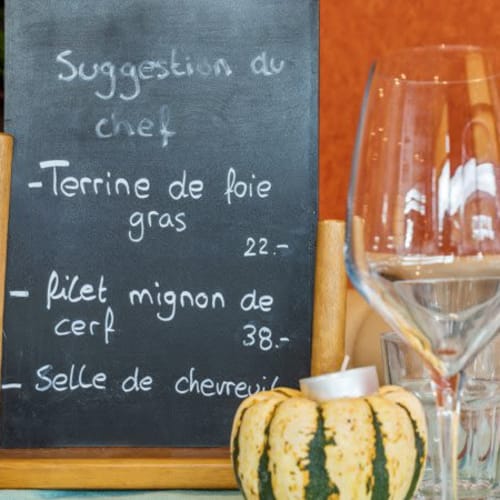 Suggestion du
chef
- Terrine de foie
gras
22.-
- filet mignon de
cerf
38.-
- Selle de chevreuil